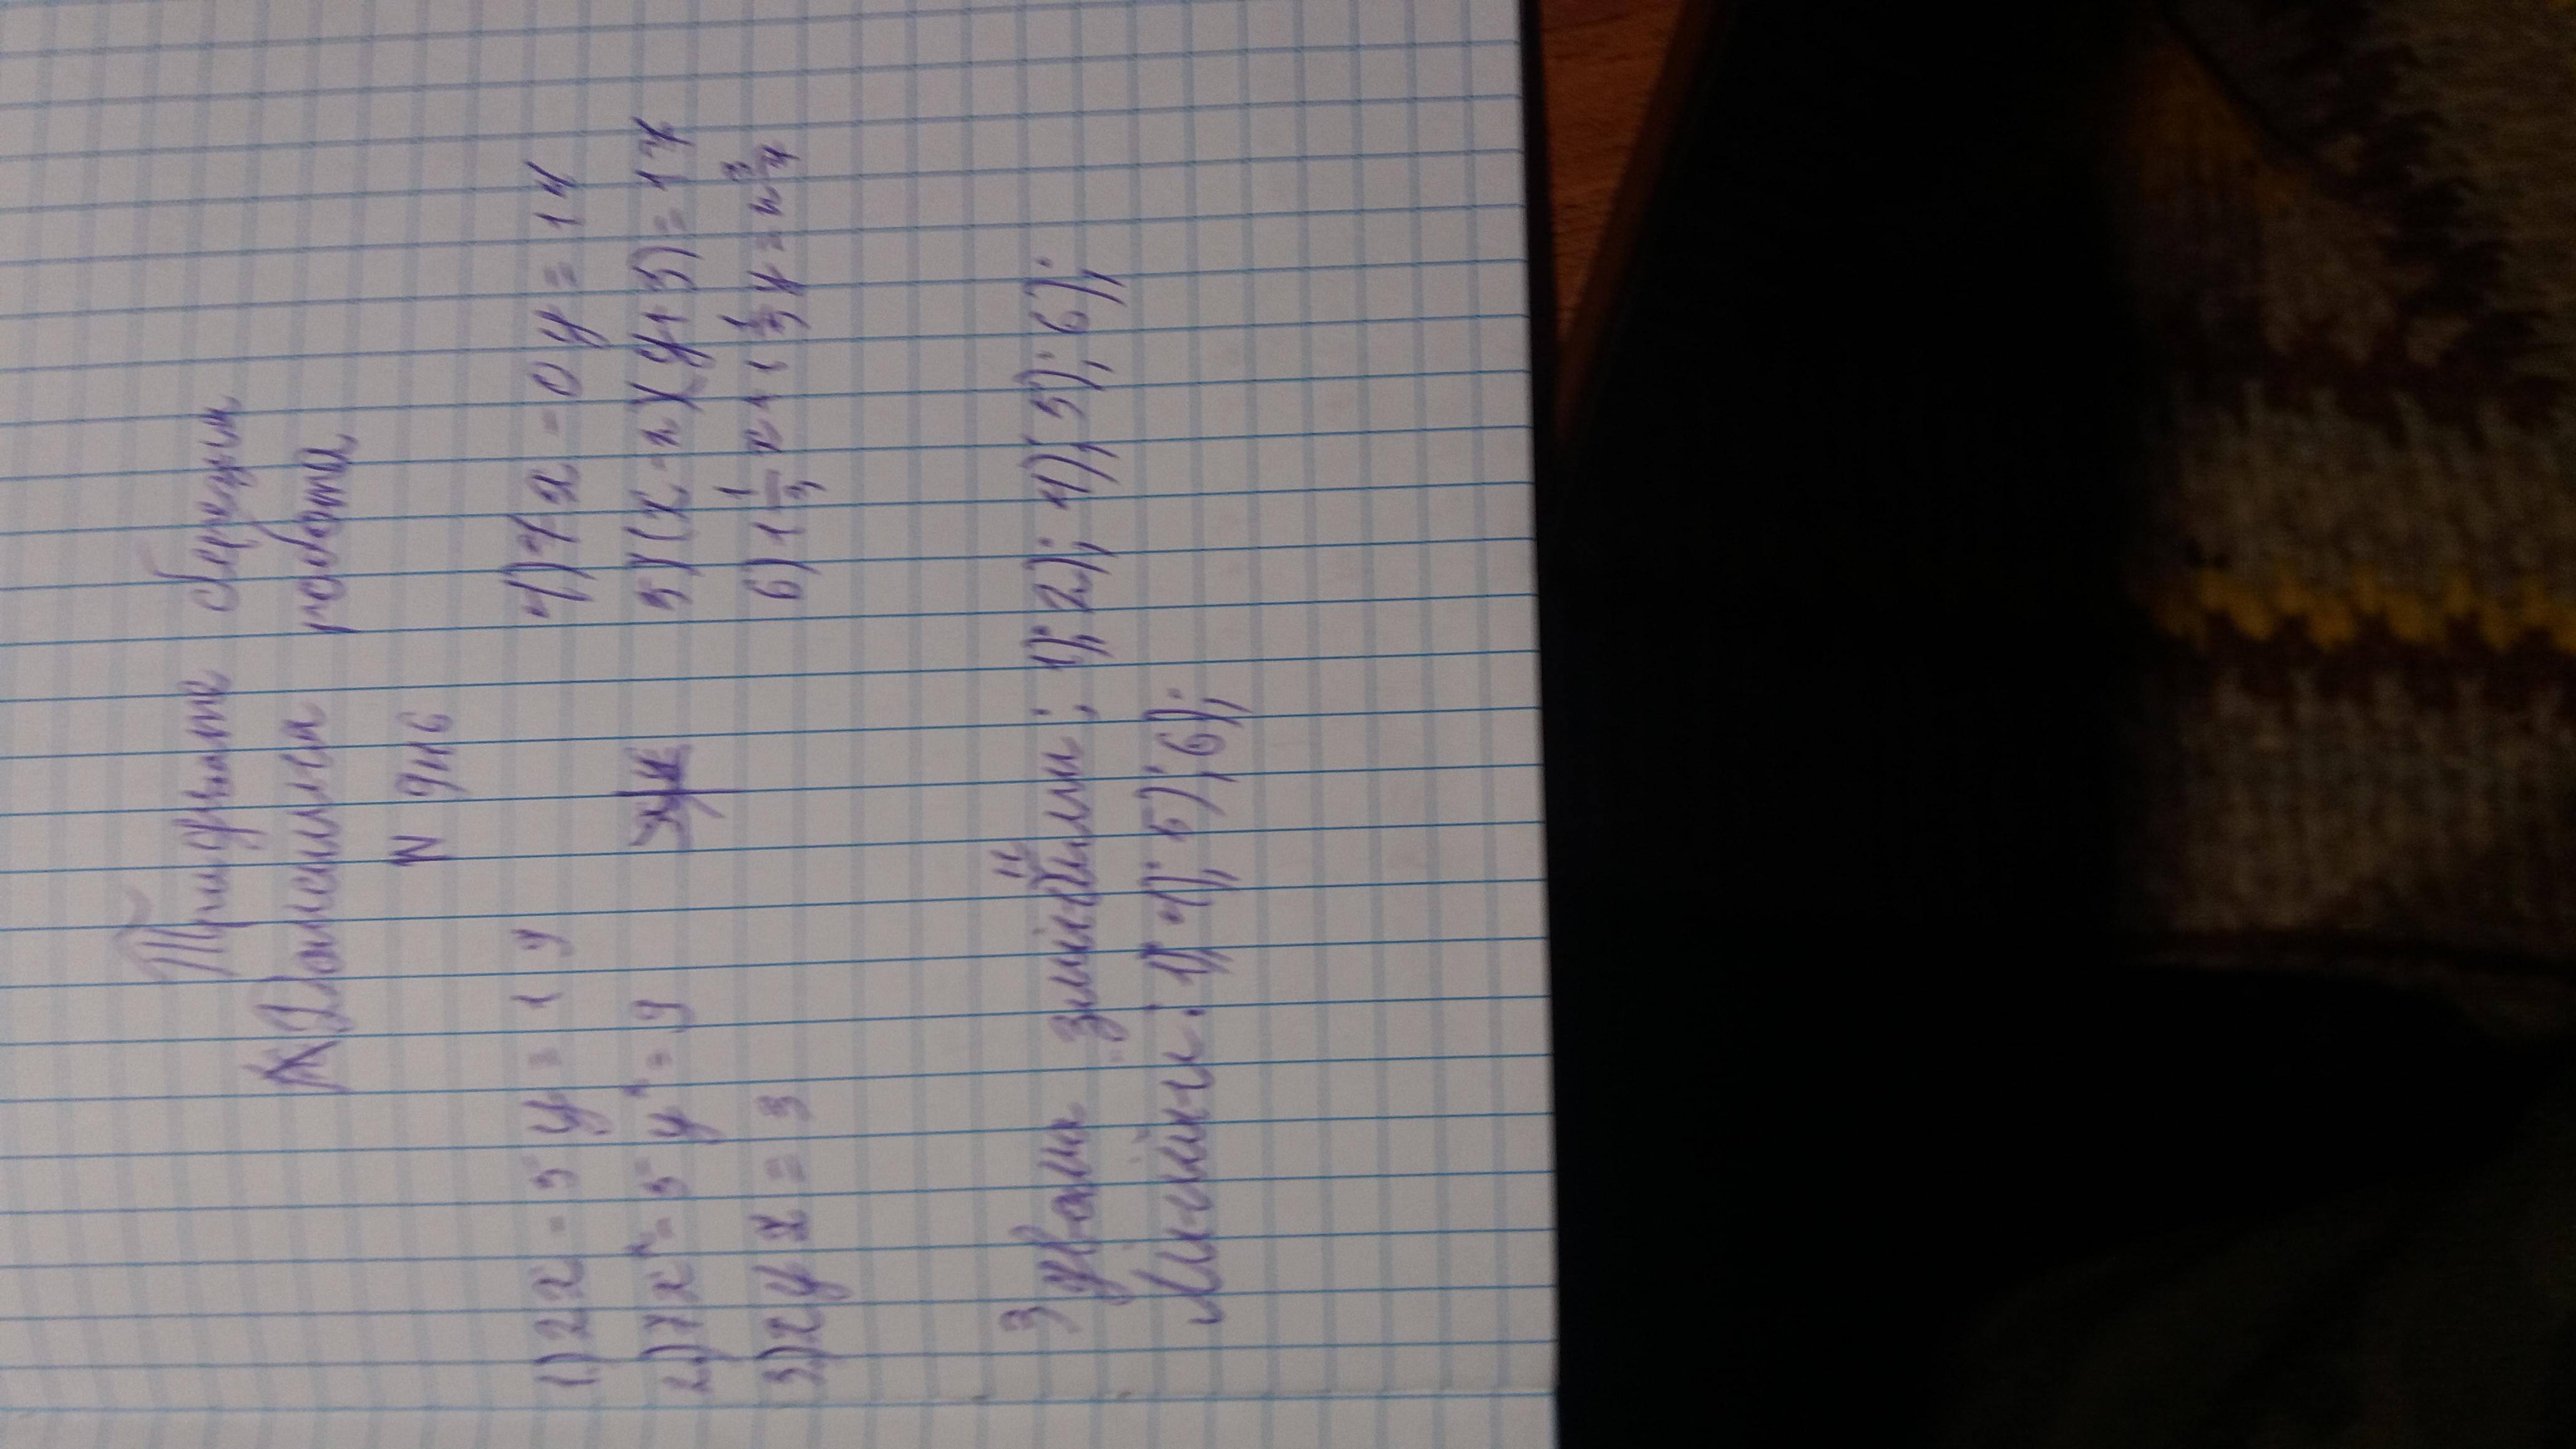 Тридцяте березня
Домашня робота
N 946
1) 2x - 5y = 19
2) 7x² - 5y² = 9
3) xyz = 3
4) 7x - 0y = 14
5) (x - 2)(y + 5) = 17
6) 1 1/3 x + 1 1/3 y = 2 3/4
З двома змінними: 1); 2); 4); 5); 6);
Лінійні: 1); 4); 5); 6);